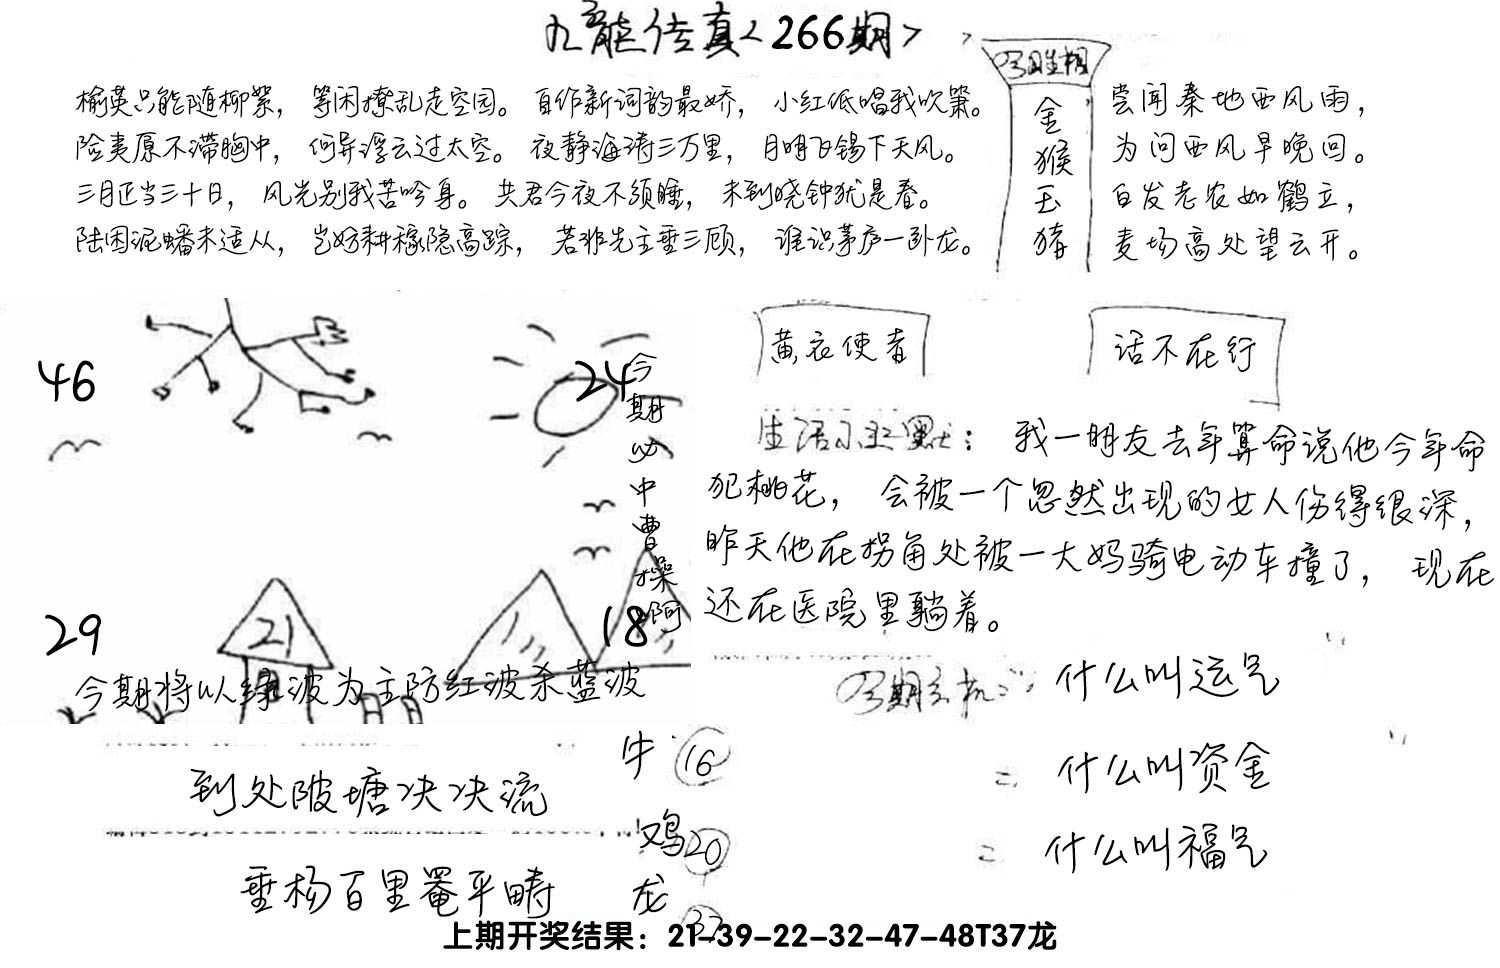 九龍传真<266期>
榆荚只能随柳絮，等闲撩乱走空园。自作新词韵最娇，小红低唱我吹箫。
险夷原不滞胸中，何异浮云过太空。夜静海涛三万里，月明飞锡下天风。
三月正当三十日，风光别我苦吟身。共君今夜不须睡，未到晓钟犹是春。
陆困泥蟠未适从，岂妨耕稼隐高踪，若非先主垂三顾，谁识茅庐一卧龙。
金
猴
玉
猪
尝闻秦地西风雨，
为问西风早晚回。
白发老农如鹤立，
麦场高处望云开。
46
24
29
21
18
今期必中曹操阿
今期将以绿波为主防红波杀蓝波
黄衣使者
话不在行
生活小幽默：我一朋友去年算命说他今年命
犯桃花，会被一个忽然出现的女人伤得很深，
昨天他在拐角处被一大妈骑电动车撞了，现在
还在医院里躺着。
今期玄机：什么叫运气
= 什么叫资金
= 什么叫福气
到处陂塘决决流
垂杨百里罨平畴
牛 16
鸡 20
龙
上期开奖结果：21-39-22-32-47-48T37龙